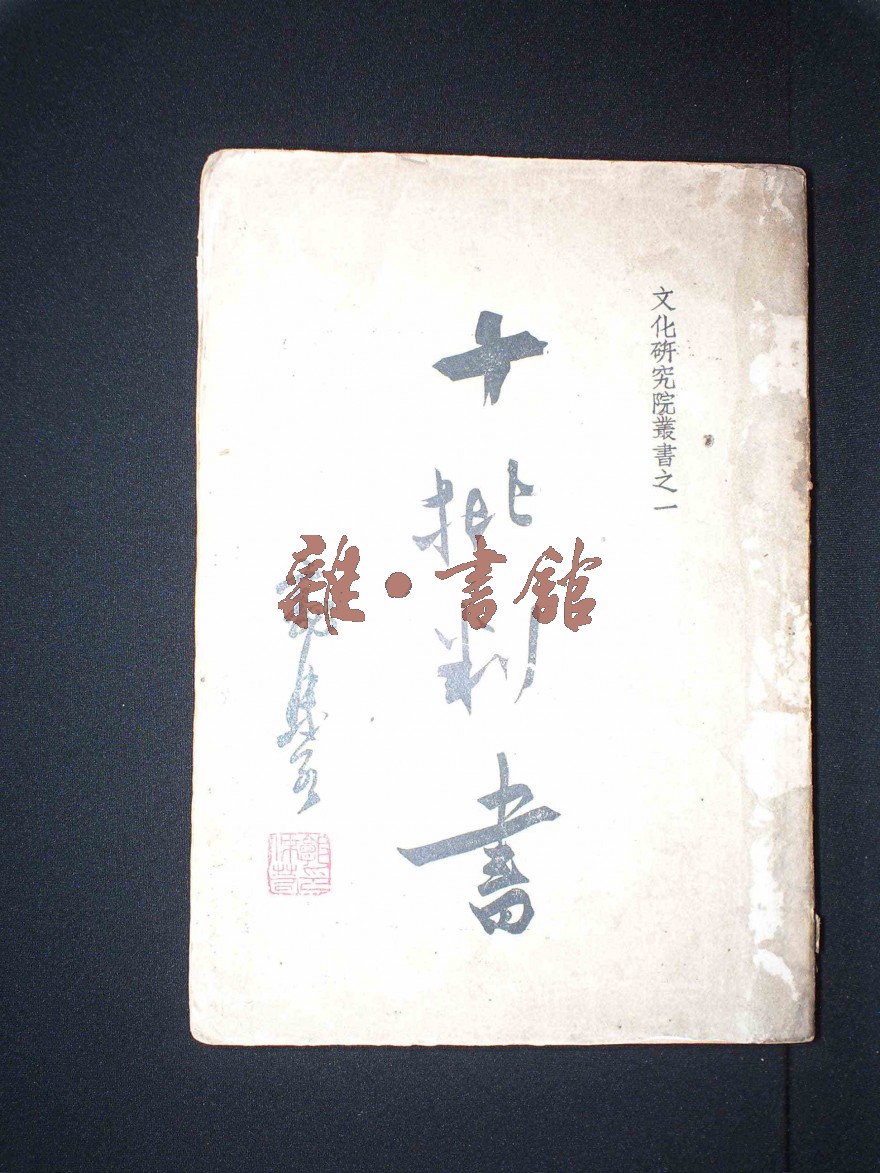 文化研究院叢書之一
十批判書
雜·書館